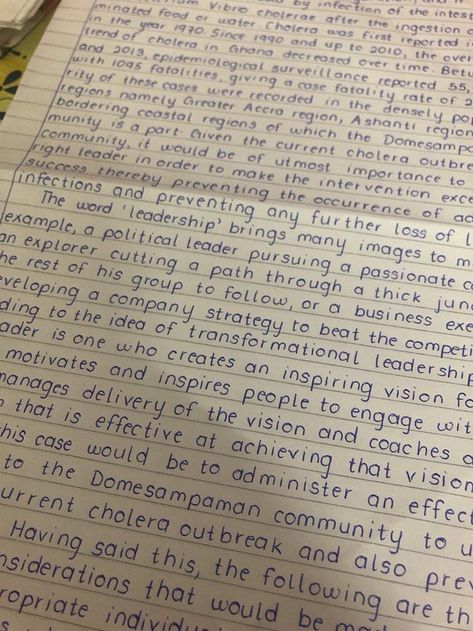 Vibro cholerae after the ingestion
minated food or water. Cholera was first reported
in the year, 1970. Since 1990 and up to 2010, the over
trend of cholera in Ghana decreased over time. Bet
and 2013, epidemiological surveillance reported 55,
with 1095 fatalities, giving a case fatality rate of 2
rity of these cases were recorded in the densely po
regions namely Greater Accra region, Ashanti region
bordering coastal regions of which the Domesampa
munity is a part. Given the current cholera outbre
community, it would be of utmost importance to
right leader in order to make the intervention exc
success thereby preventing the occurrence of ad
infections and preventing any further loss of li
The word 'leadership' brings many images to m
example, a political leader pursuing a passionate c
an explorer cutting a path through a thick jun
he rest of his group to follow, or a business exe
eveloping a company strategy to beat the competi
ding to the idea of transformational leadership
ader is one who creates an inspiring vision fo
motivates and inspires people to engage wit
manages delivery of the vision and coaches a
that is effective at achieving that vision
his case would be to administer an effect
to the Domesampaman community to u
urrent cholera outbreak and also prev
Having said this, the following are th
nsiderations that would be
ropriate individu